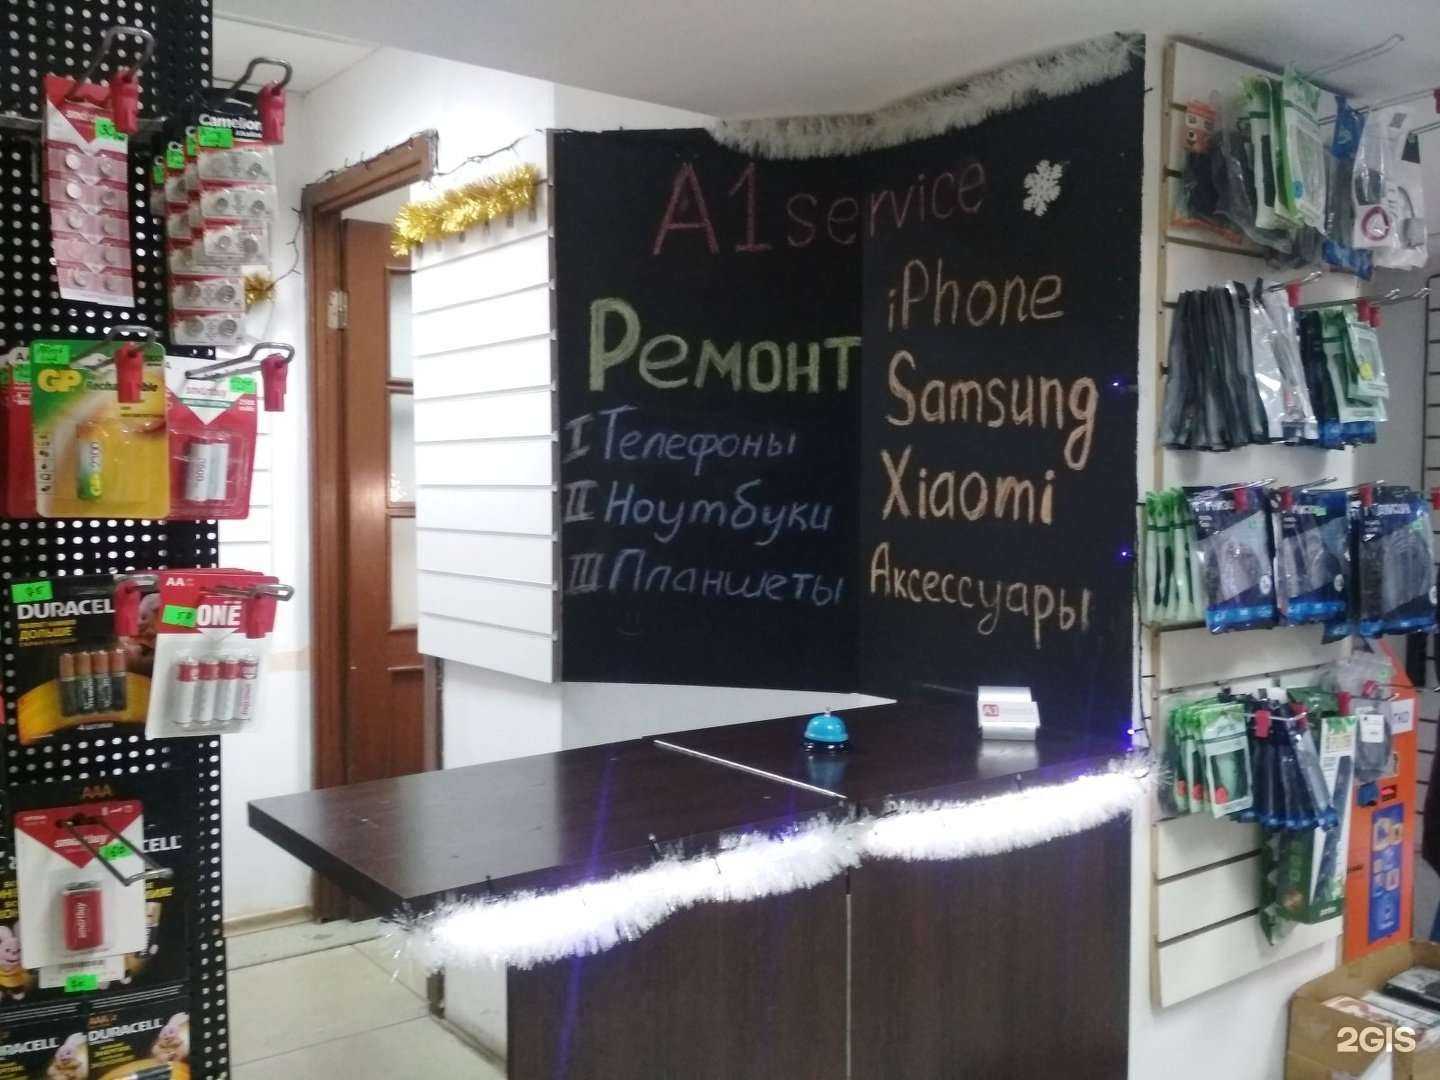 A1 service
Ремонт
I Телефоны
II Ноутбуки
III Планшеты
iPhone
Samsung
Xiaomi
Аксессуары
A1
Camelion
GP
Rechargeable
2100
smartbuy
DURACELL
ДОЛЬШЕ
AA
ONE
50
AAA
smartbuy
150
DURACELL
DURACELL
2GIS